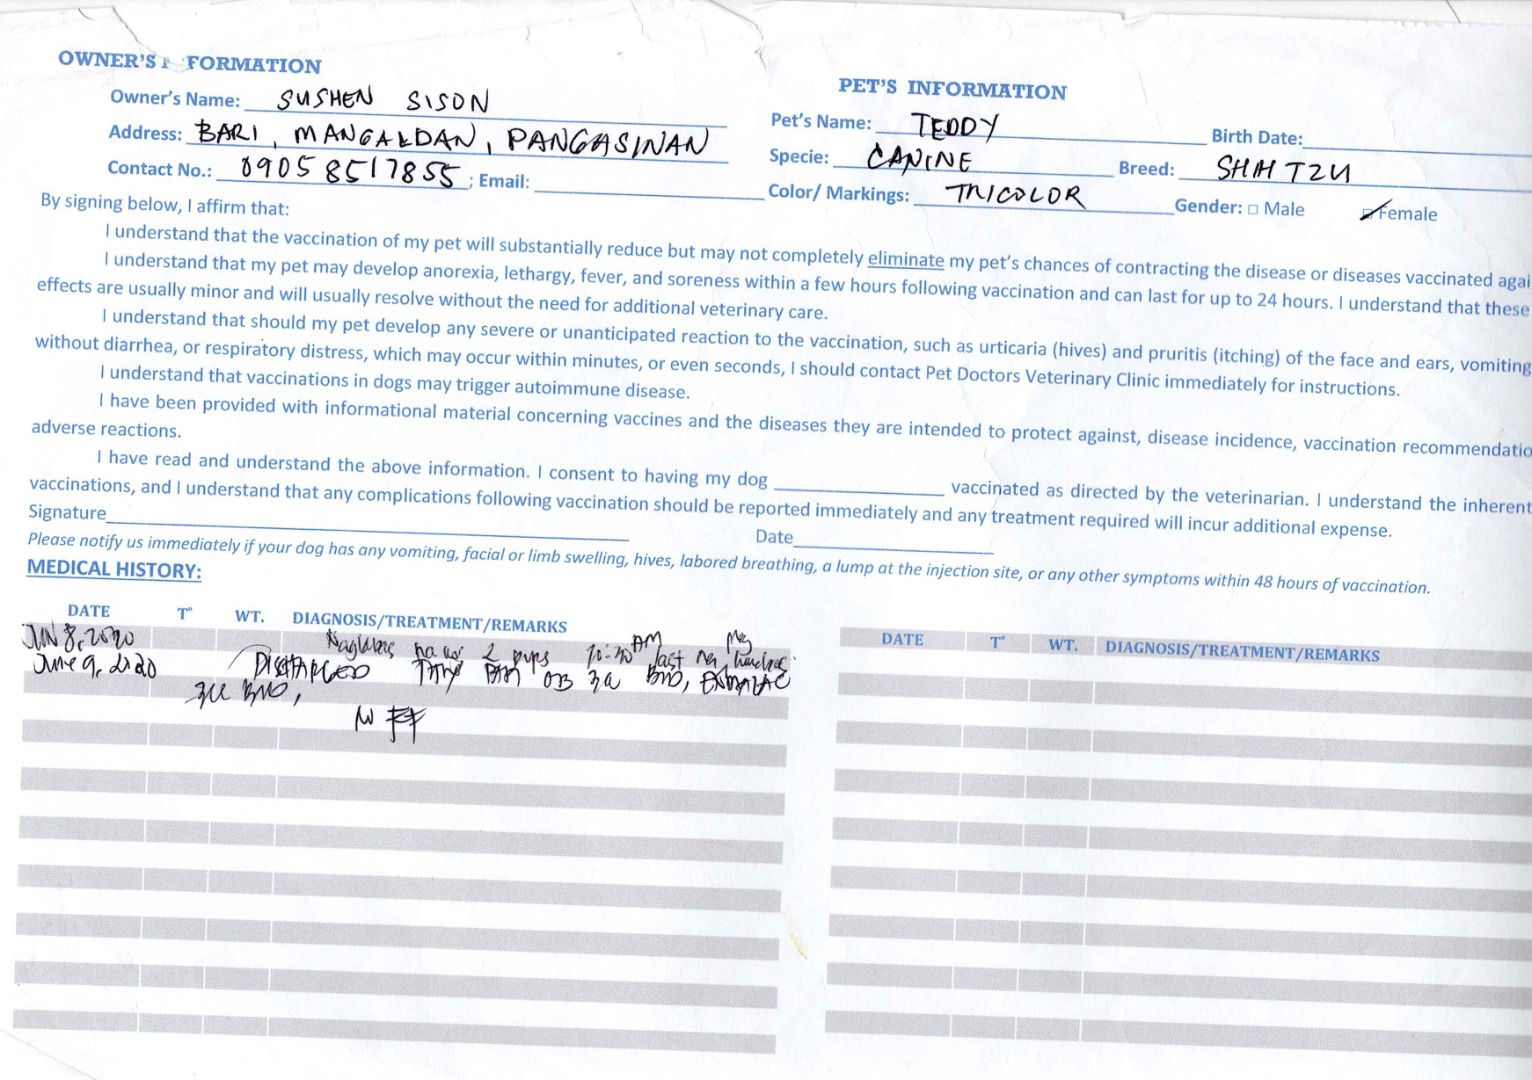 OWNER'S FORMATION
Owner's Name: SUSHEN SISON
Address: BARI, MANGALDAN, PANGASINAN
Contact No.: 09058517855; Email:
PET'S INFORMATION
Pet's Name: TEDDY Birth Date:
Specie: CANINE Breed: SHIH TZU
Color/ Markings: TRICOLOR Gender: □ Male Female
By signing below, I affirm that:
I understand that the vaccination of my pet will substantially reduce but may not completely eliminate my pet's chances of contracting the disease or diseases vaccinated agai
I understand that my pet may develop anorexia, lethargy, fever, and soreness within a few hours following vaccination and can last for up to 24 hours. I understand that these
effects are usually minor and will usually resolve without the need for additional veterinary care.
I understand that should my pet develop any severe or unanticipated reaction to the vaccination, such as urticaria (hives) and pruritis (itching) of the face and ears, vomiting
without diarrhea, or respiratory distress, which may occur within minutes, or even seconds, I should contact Pet Doctors Veterinary Clinic immediately for instructions.
I understand that vaccinations in dogs may trigger autoimmune disease.
I have been provided with informational material concerning vaccines and the diseases they are intended to protect against, disease incidence, vaccination recommendatio
adverse reactions.
I have read and understand the above information. I consent to having my dog ____ vaccinated as directed by the veterinarian. I understand the inherent
vaccinations, and I understand that any complications following vaccination should be reported immediately and any treatment required will incur additional expense.
Signature____ Date____
Please notify us immediately if your dog has any vomiting, facial or limb swelling, hives, labored breathing, a lump at the injection site, or any other symptoms within 48 hours of vaccination.
MEDICAL HISTORY:
DATE T° WT. DIAGNOSIS/TREATMENT/REMARKS
JUN 8, 2020 2 pups AM last
June 9, 2020 DISCHARGED
DATE T° WT. DIAGNOSIS/TREATMENT/REMARKS